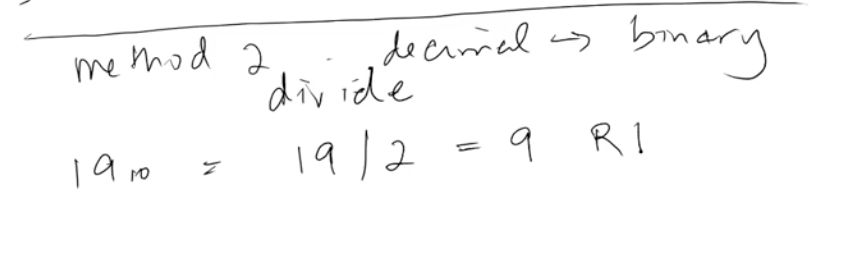 method 2 decimal → binary
divide
19₁₀ = 19 / 2 = 9 R1